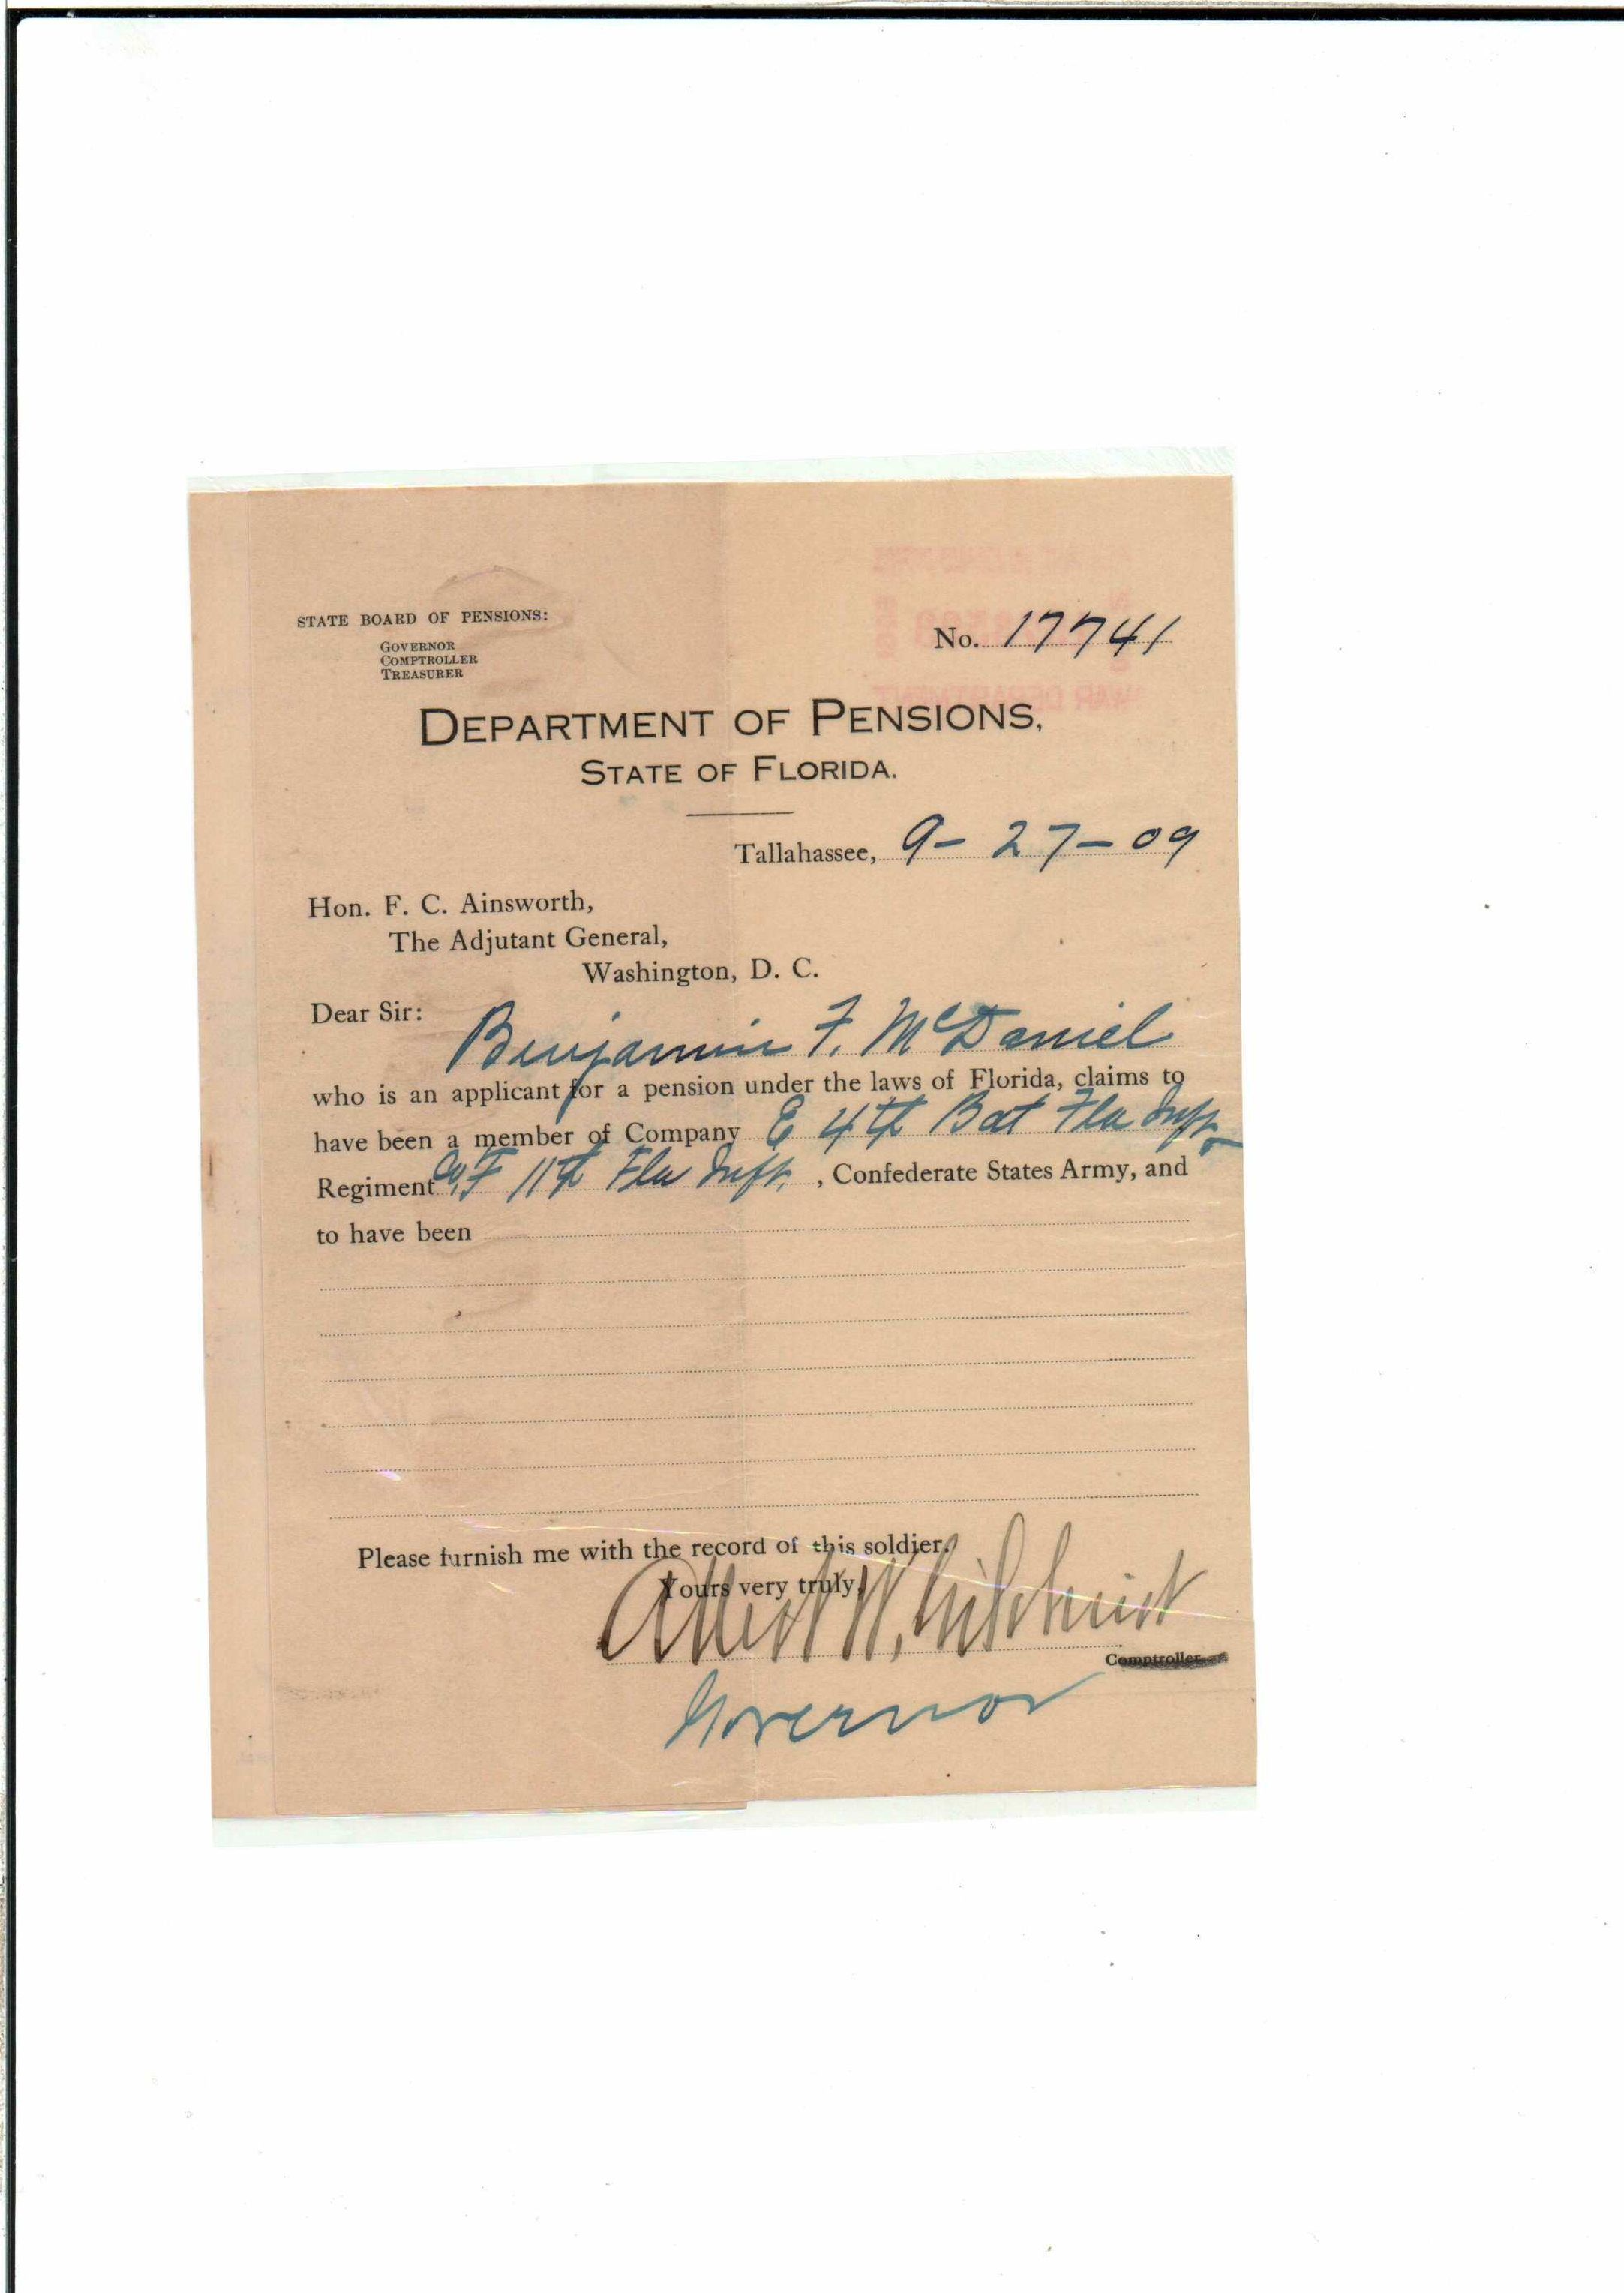 STATE BOARD OF PENSIONS:
GOVERNOR
COMPTROLLER
TREASURER
No. 17741
DEPARTMENT OF PENSIONS,
STATE OF FLORIDA.
Tallahassee, 9-27-09
Hon. F. C. Ainsworth,
The Adjutant General,
Washington, D. C.
Dear Sir:
Benjamin F. McDaniel
who is an applicant for a pension under the laws of Florida, claims to
have been a member of Company E 4th Bat Fla Inft.
Regiment Co. F 11th Fla Inft. , Confederate States Army, and
to have been
Please furnish me with the record of this soldier.
Yours very truly,
Albert W. Gilchrist
Comptroller.
Governor
WAR DEPARTMENT